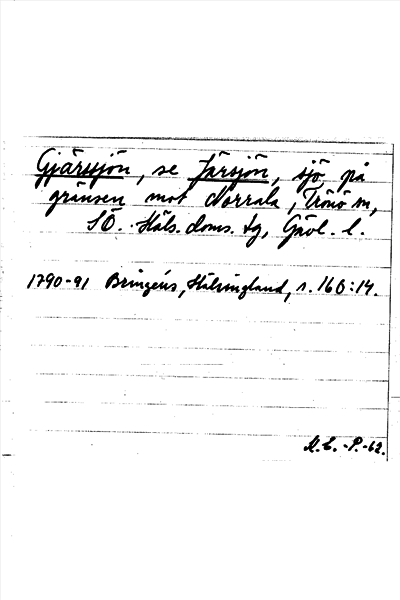 Gjärsjön, se Järsjön, sjö på
gränsen mot Norrala, Trönö sn,
SÖ. Häls. doms. tg, Gävl. l.
1790-91 Bringéus, Hälsingland, s. 160:14.
-P.-62.